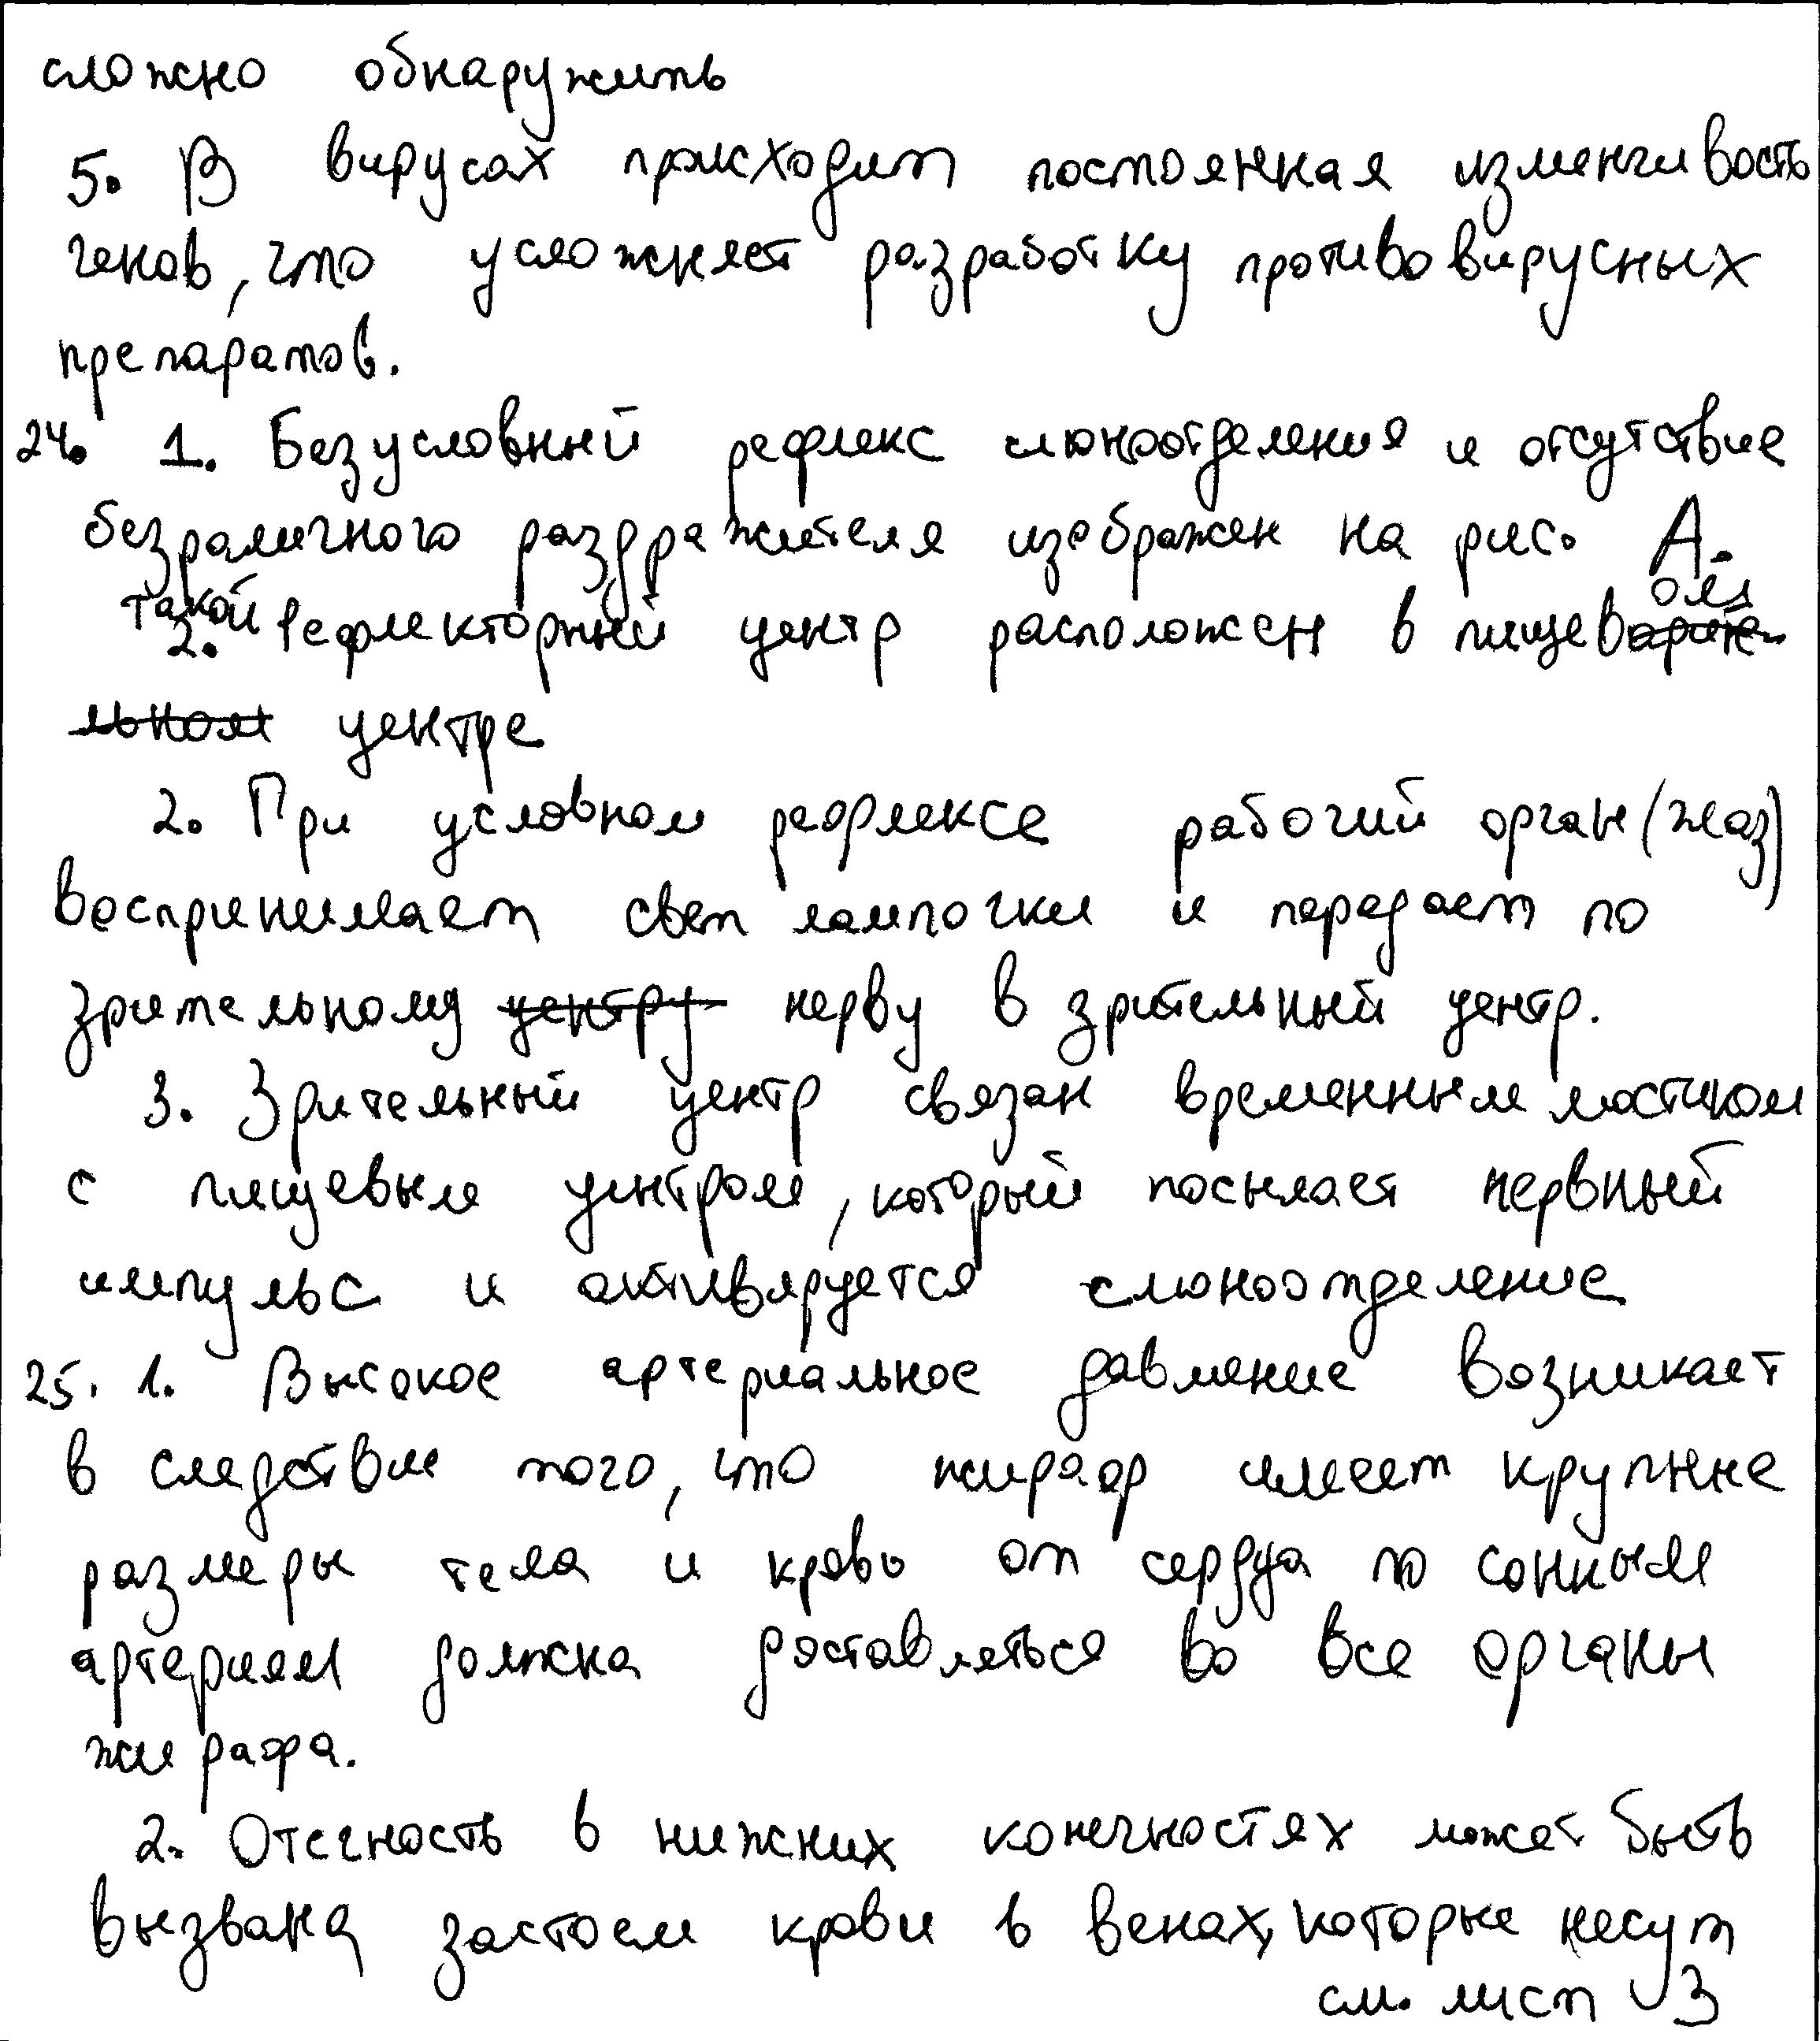 сложно обнаружить
5. В вирусах происходит постоянная изменчивость
генов, что усложняет разработку противовирусных
препаратов.
24. 1. Безусловный рефлекс слюноотделения и отсутствие
безразличного раздражителя изображен на рис. А.
такой
2. Рефлекторный центр расположен в пищевом
центре
2. При условном рефлексе рабочий орган (глаз)
воспринимает свет лампочки и передает по
зрительному центру нерву в зрительный центр.
3. Зрительный центр связан временным мостиком
с пищевым центром, который посылает нервный
импульс и активируется слюноотделение
25. 1. Высокое артериальное давление возникает
в следствии того, что жираф имеет крупные
размеры тела и кровь от сердца по сонным
артериям должна доставляться во все органы
жирафа.
2. Отечность в нижних конечностях может быть
вызвана застоем крови в венах, которые несут
см. лист 3